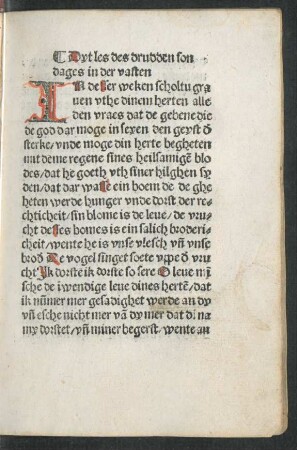 ¶ Dyt les des drudden son
dages in der vasten
IN desser weken scholtu gra
uen vthe dinem herten alle
den vraes dat de gebene die
de god dar moge in seyen den geyst d
sterke/vnde moge din herte begheten
mt deme regene sines heilsamige blo
des/dat he goeth vth siner hilghen sy
den/dat dar wasse ein boem de de ghe
heten werde hunger vnde dorst der re
chticheit/sin blome is de leue/de vru
cht desses bomes is ein salich broder
icheit/wente he is vnse vlesch vn vnse
brod De vogel singet soete vppe d vru
cht Jk dorste ik dorste so sere O leue mi
sche de iwendige leue dines herte/dat
ik nummer mer gesadighet werde an dy
vn esche nicht mer va dy mer dat di na
my dorstet/vn miner begerst/wente an